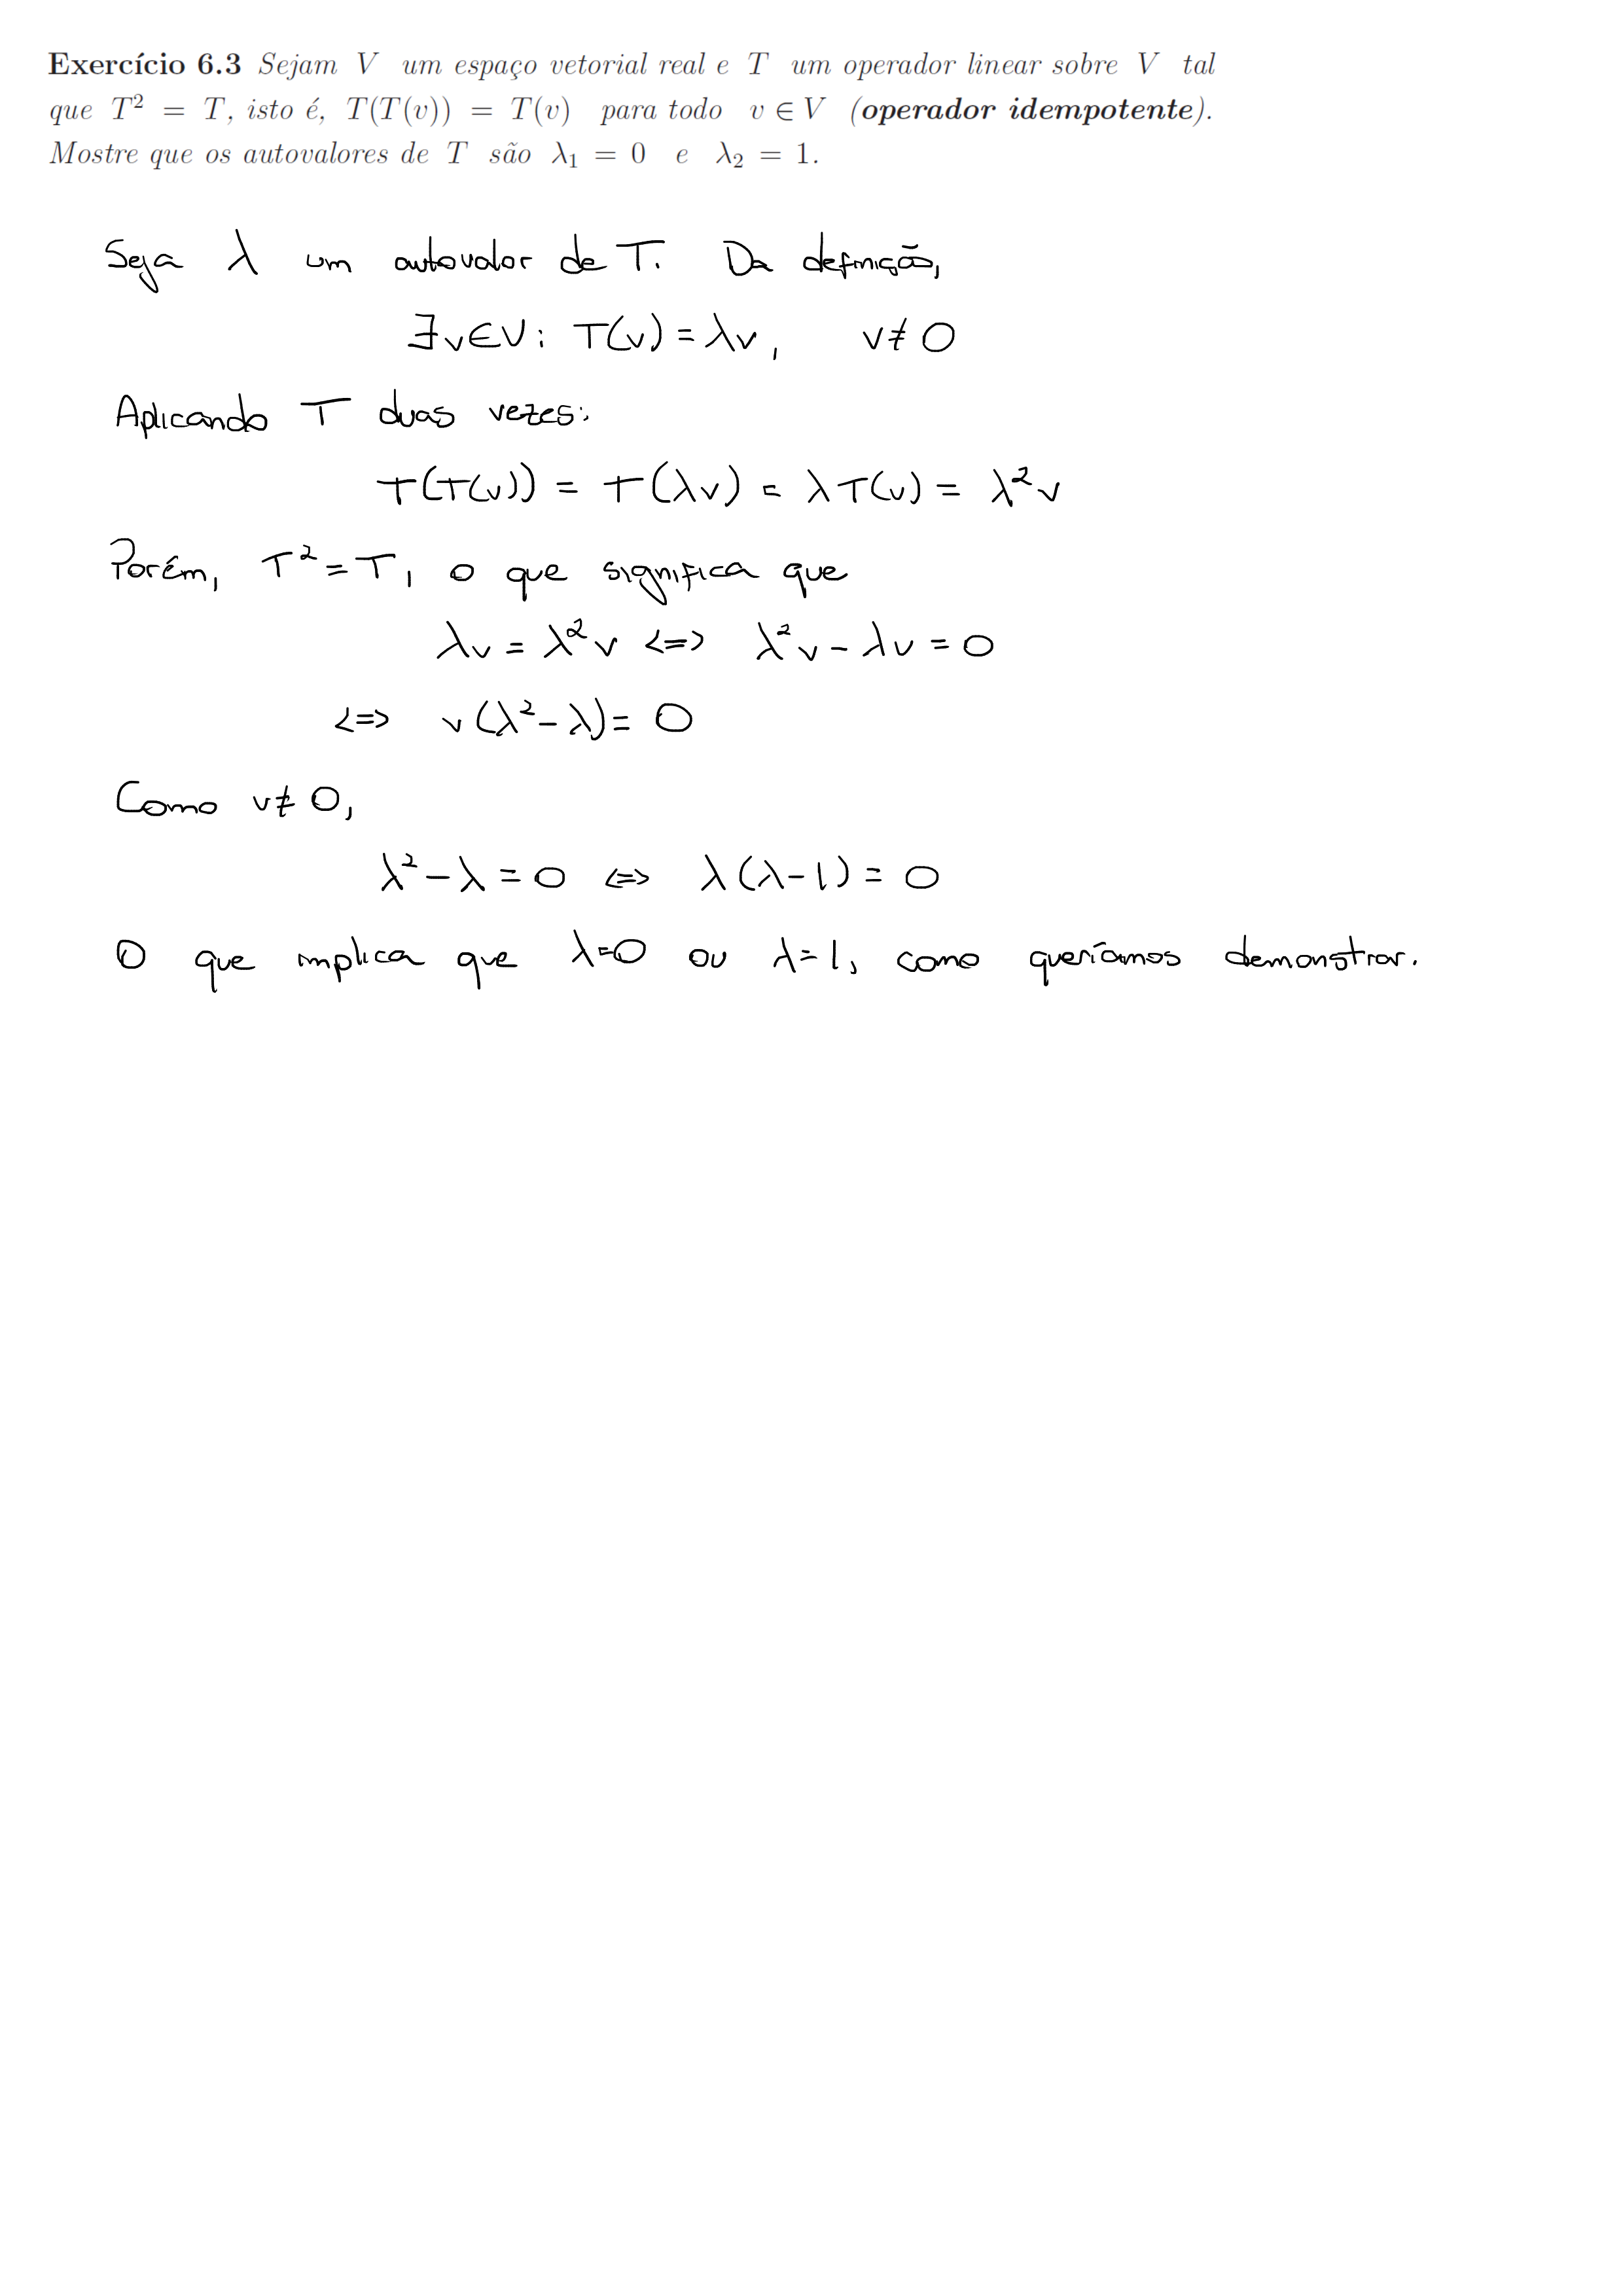 Exercício 6.3 Sejam V um espaço vetorial real e T um operador linear sobre V tal
que T² = T, isto é, T(T(v)) = T(v) para todo v ∈ V (operador idempotente).
Mostre que os autovalores de T são λ₁ = 0 e λ₂ = 1.
Seja λ um autovalor de T. Da definição,
∃v∈V: T(v) = λv, v≠0
Aplicando T duas vezes:
T(T(v)) = T(λv) = λT(v) = λ²v
Porém, T² = T, o que significa que
λv = λ²v <=> λ²v - λv = 0
<=> v(λ² - λ) = 0
Como v≠0,
λ² - λ = 0 <=> λ(λ-1) = 0
O que implica que λ=0 ou λ=1, como queríamos demonstrar.